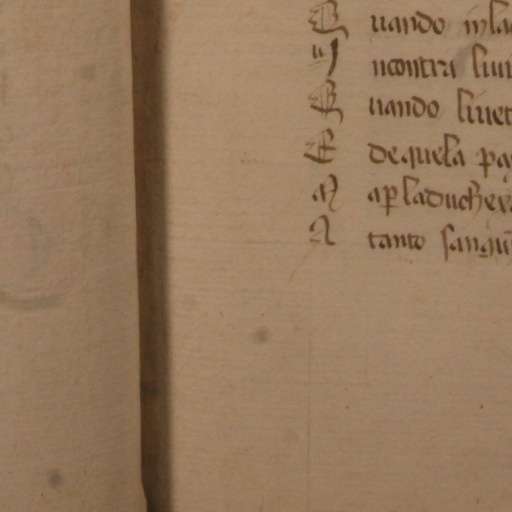 Q uando in la
I ncontra liui
Q uando li uet
E de quela pa
M a p la duchex
A tanto sangu